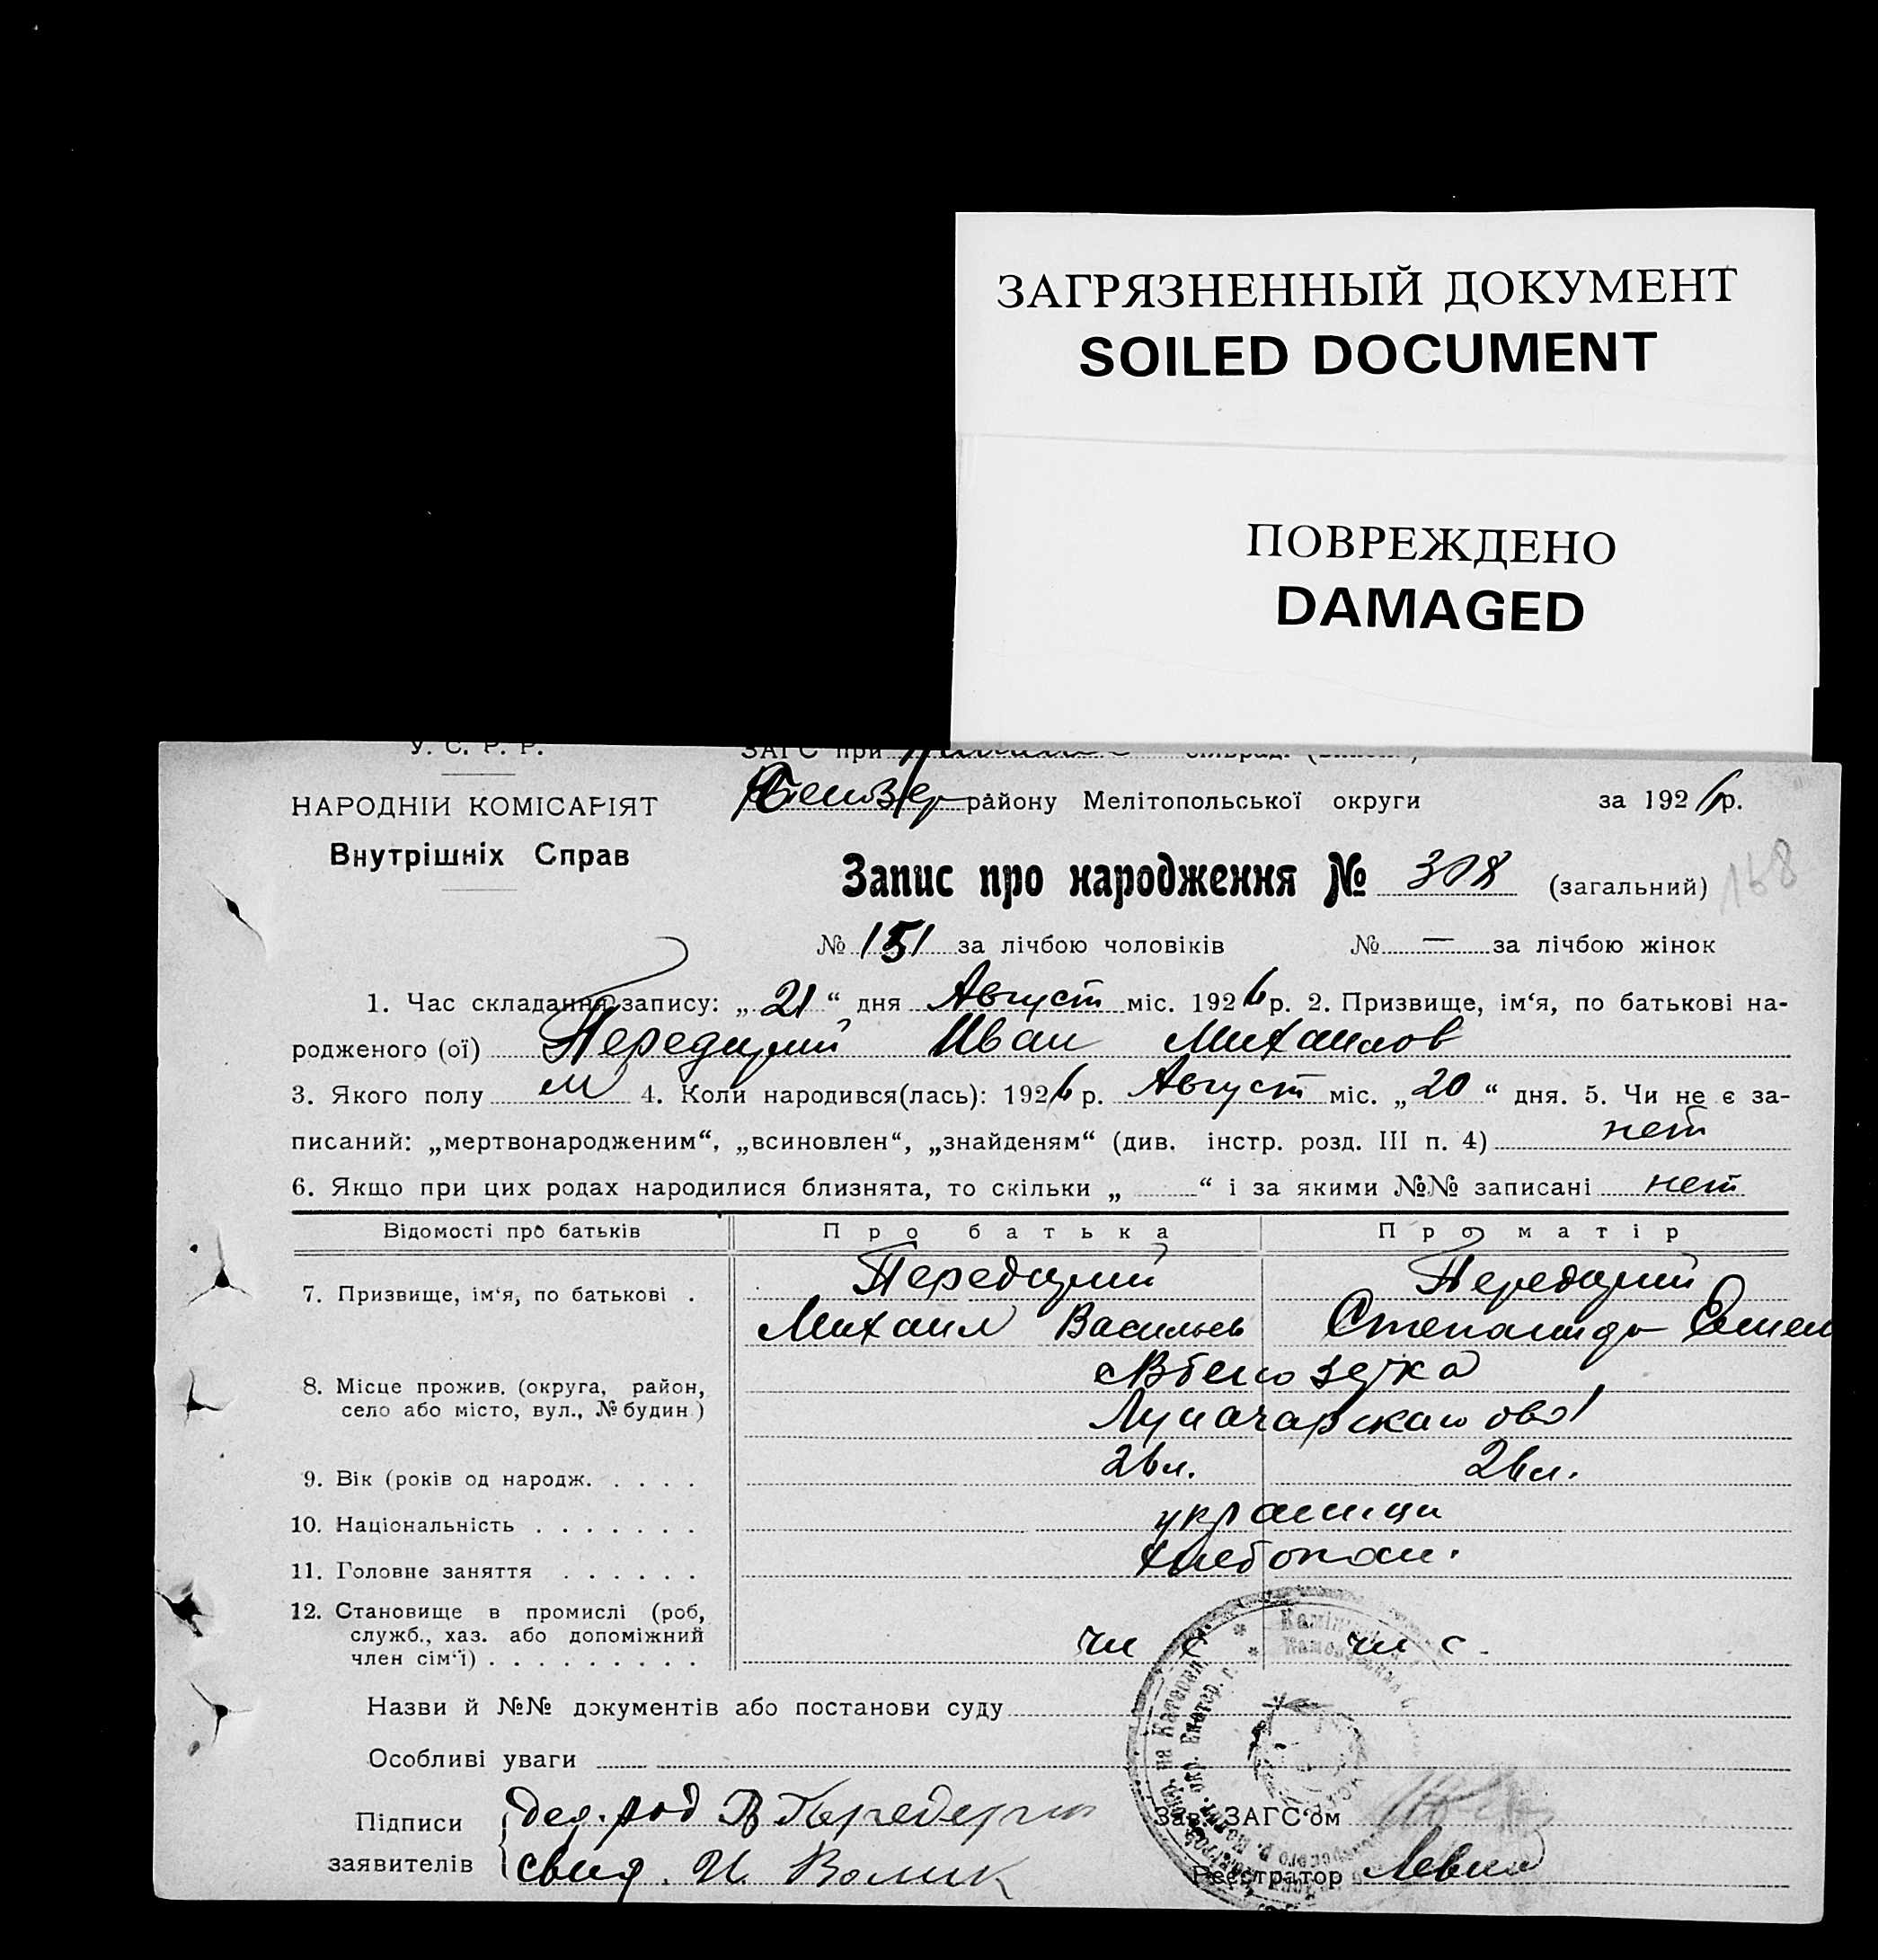 ЗАГРЯЗНЕННЫЙ ДОКУМЕНТ
SOILED DOCUMENT
ПОВРЕЖДЕНО
DAMAGED
У. С. Р. Р.
ЗАГС при
НАРОДНІЙ КОМІСАРІЯТ
району Мелітопольської округи за 1926 р.
Внутрішніх Справ
Запис про народження № 308 (загальний) 168
№ 151 за лічбою чоловіків № — за лічбою жінок
1. Час складання запису: „ 21 “ дня Август міс. 1926 р. 2. Призвище, ім‘я, по батькові на-
родженого (ої) Иван Михаилов
3. Якого полу м 4. Коли народився(лась): 1926 р. Август міс. „ 20 “ дня. 5. Чи не є за-
писаний: „мертвонародженим“, „всиновлен“, „знайденям“ (див. інстр. розд. III п. 4) нет
6. Якщо при цих родах народилися близнята, то скільки „ “ і за якими №№ записані нет
Відомості про батьків Про батька Про матір
7. Призвище, ім‘я, по батькові .
Михаил Васильев Степанида
8. Місце прожив. (округа, район,
село або місто, вул., № будин.)
9. Вік (років од народж. . . . . 26 л. 26 л.
10. Національність . . . . . . . украинци
11. Головне заняття . . . . . . хлебопаш.
12. Становище в промислі (роб,
служб., хаз. або допоміжний
член сім‘ї) . . . . . . . . . чл с чл с.
Назви й №№ документів або постанови суду
Особливі уваги
Підписи дед. род
Зав. ЗАГС‘ом
заявителів свид. И. Волик
Реєстратор